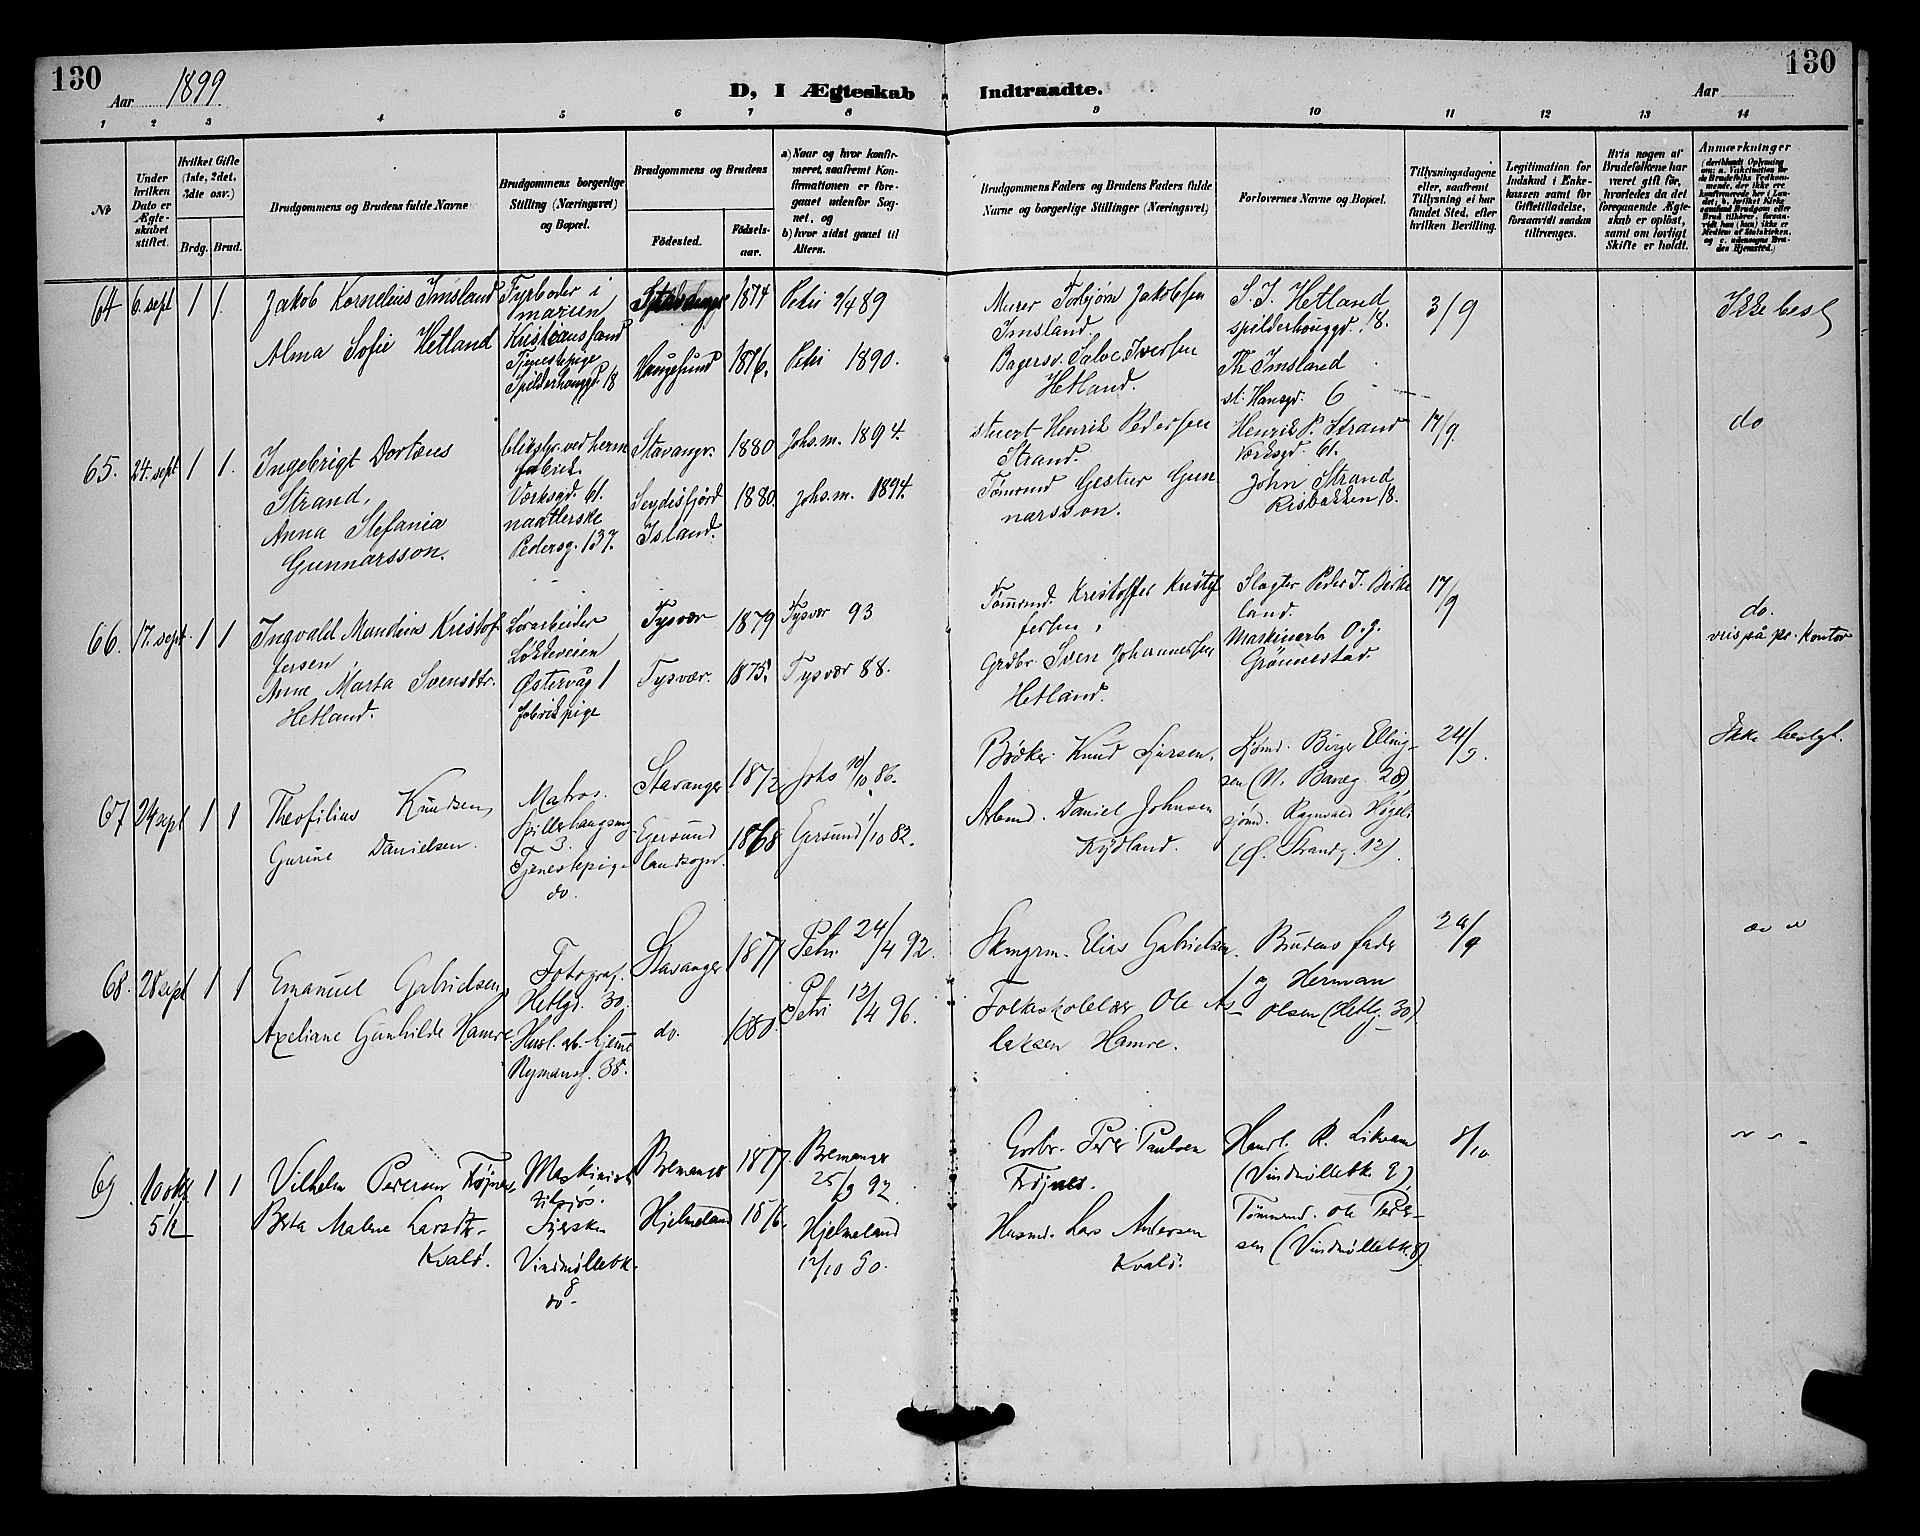 130
Aar 1899.
D, I Ægteskab Indtraadte.
Aar
130
1 2 3 4 5 6 7 8 9 10 11 12 13 14
No
Under hvilken Dato er Ægteskabet stiftet.
Hvilket Gifte (1ste, 2det, 3dte osv.)
Brdg. Brud.
Brudgommens og Brudens fulde Navne
Brudgommens borgerlige Stilling (Næringsvei) og Bopæl.
Brudgommens og Brudens
Fødested.
Fødselsaar.
a) Naar og hvor konfirmeret, saafremt Konfirmationen er foregaaet udenfor Sognet, og
b) hvor sidst gaaet til Alters.
Brudgommens Faders og Brudens Faders fulde Navne og borgerlige Stillinger (Næringsvei)
Forlovernes Navne og Bopæl.
Tillysningsdagene eller, saafremt Tillysning ei har fundet Sted, efter hvilken Bevilling.
Legitimation for Indskud i Enkekassen samt for Giftetilladelse, forsaavidt saadan tiltrænges.
Hvis nogen af Brudefolkene har været gift før, hvorledes da det foregaaende Ægteskab er opløst, samt om lovligt Skifte er holdt.
Anmærkninger
64 6. sept 1 1.
Jakob Kornelius Imsland
Alma Sofie Hetland
Fyrbøder i
marien
Kristiansand
Tjenestepige
Spilderhauggd. 18
Stavanger 1874 Petri 9/4 89
Haugesund 1876. Petri 1890.
Murer Torbjørn Jakobsen
Imsland.
Bagersv. Salve Iversen
Hetland.
S. I. Hetland
spilderhauggd. 18.
Th. Imsland
st. Hansgd. 6
3/9
Ikke best
65. 24. sept 1 1.
Ingebrigt Dorteus
Strand,
Anna Stefania
Gunnarsson.
blikslgr. ved herm
fabrik.
Værksgd. 61.
naatlerske
Pedersg. 137.
Stavangr. 1880 Johs. m. 1894.
Seydisfjörd 1880. Johs. m. 1894.
Island.
stuert Henrik Pedersen
Strand.
Tømrmd Gestur Gun
narsson.
Henrik P. Strand
Værksgd. 61.
John Strand
Risbakken 18.
17/9.
do
66. 17. sept. 1 1
Ingvald Mandeius Kristof
fersen
Anne Marta Svensdtr.
Hetland.
Løsarbeider
Løkkeveien
Østervåg 1
fabrikpige
Tysvær 1879 Tysvær 93
Tysvær. 1875. Tysvær 88.
Tømrmd. Kristoffer Kristof
fersen,
Grdbr. Sven Johannessen
Hetland.
Slagter Peder I. Birke
land.
Maskinarb. O. J.
Grønnestad.
17/9
do.
vies på pr. Kontor
67 24 sept 1 1
Theofilius Knudsen,
Gurine Danielsen.
Matros.
3.
Tjenestepige
do.
Stavanger 1872 Johs 10/10 86.
Egersund 1868 Egersund 1/10 82.
landsogn.
Bødker Knud Larsen.
Arbmd. Daniel Johnsen
Kydland.
Sjømd. Birger Elling-
sen (N. Baneg. 28)
sjømd. Ragnvald
(Ø. Strandg. 12).
24/9.
Ikke besgt.
68. 28 sept 1 1
Emanuel Gabrielsen,
Axeliane Gunhilde Hamre
Fotograf.
Hetlg. 30.
Husl. arb. hjeme
Nymansg. 38.
Stavanger 1877 Petri 24/4 92.
do. 1880. Petri 12/4 96.
Elias Gabrielsen.
Folkeskolelær Ole As-
laksen Hamre.
Brudens fader
og Herman
Olsen (Hetlg. 30).
24/9
69 10 okt 1 1
5 1/2
Vilhelm Petersen Frøjnes
Berta Malene Larsdtr.
Kvalø.
Maskinist
tilsjøs.
Fjersk.
Vindmøllebk.
8
do-
Bremanger 1877. Bremanger
25/9 92
Hjelmeland 1876. Hjelmeland
12/10 90.
Grbr. Peter Paulsen
Frøjnes.
Husmd. Lars Andersen
Kvalø.
Handl. R. Likvam
(Vindmøllebk. 9).
Tømmermd. Ole Peter-
sen (Vindmøllebk. 8).
8/10.